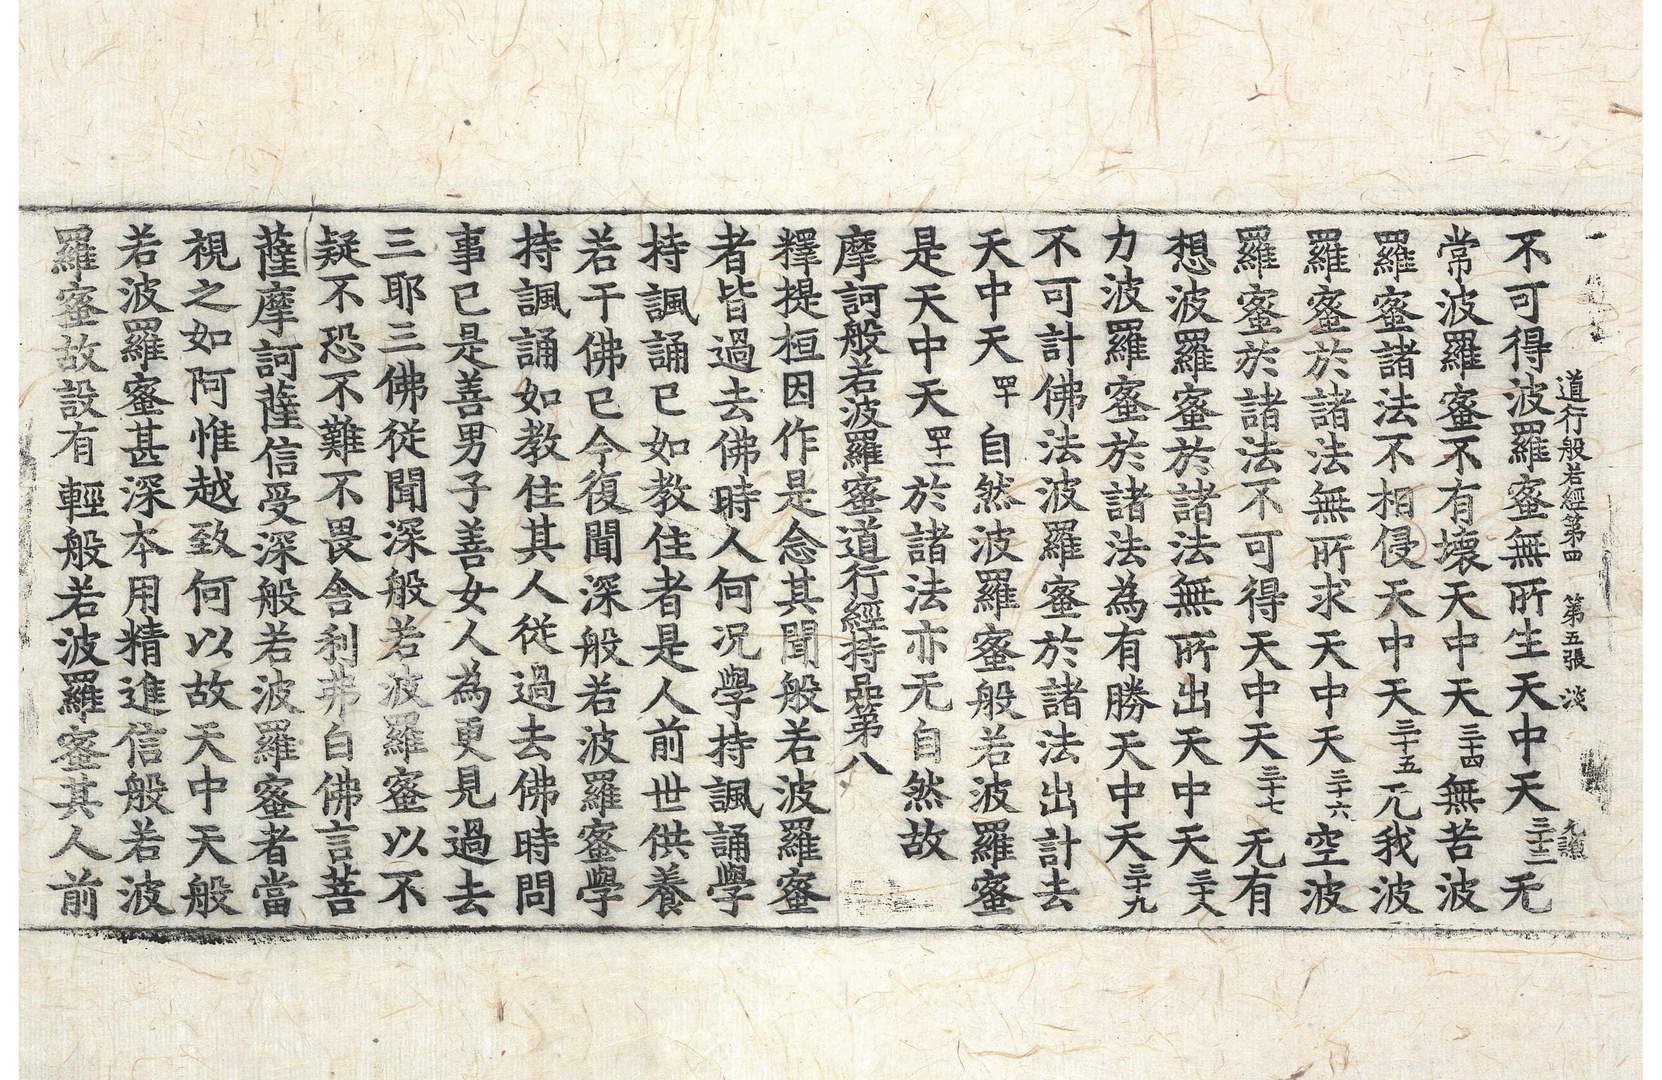 道行般若經第四　第五張　淡
不可得波羅蜜無所生天中天三十三无
常波羅蜜不有壞天中天三十四無苦波
羅蜜諸法不相侵天中天三十五无我波
羅蜜於諸法無所求天中天三十六空波
羅蜜於諸法不可得天中天三十七无有
想波羅蜜於諸法無所出天中天三十八
力波羅蜜於諸法為有勝天中天三十九
不可計佛法波羅蜜於諸法出計去
天中天四十自然波羅蜜般若波羅蜜
是天中天四十一於諸法亦无自然故
摩訶般若波羅蜜道行經持品第八
釋提桓因作是念其聞般若波羅蜜
者皆過去佛時人何況學持諷誦學
持諷誦已如教住者是人前世供養
若干佛已今復聞深般若波羅蜜學
持諷誦如教住其人從過去佛時問
事已是善男子善女人為更見過去
三耶三佛從聞深般若波羅蜜以不
疑不恐不難不畏舍利弗白佛言菩
薩摩訶薩信受深般若波羅蜜者當
視之如阿惟越致何以故天中天般
若波羅蜜甚深本用精進信般若波
羅蜜故設有輕般若波羅蜜其人前